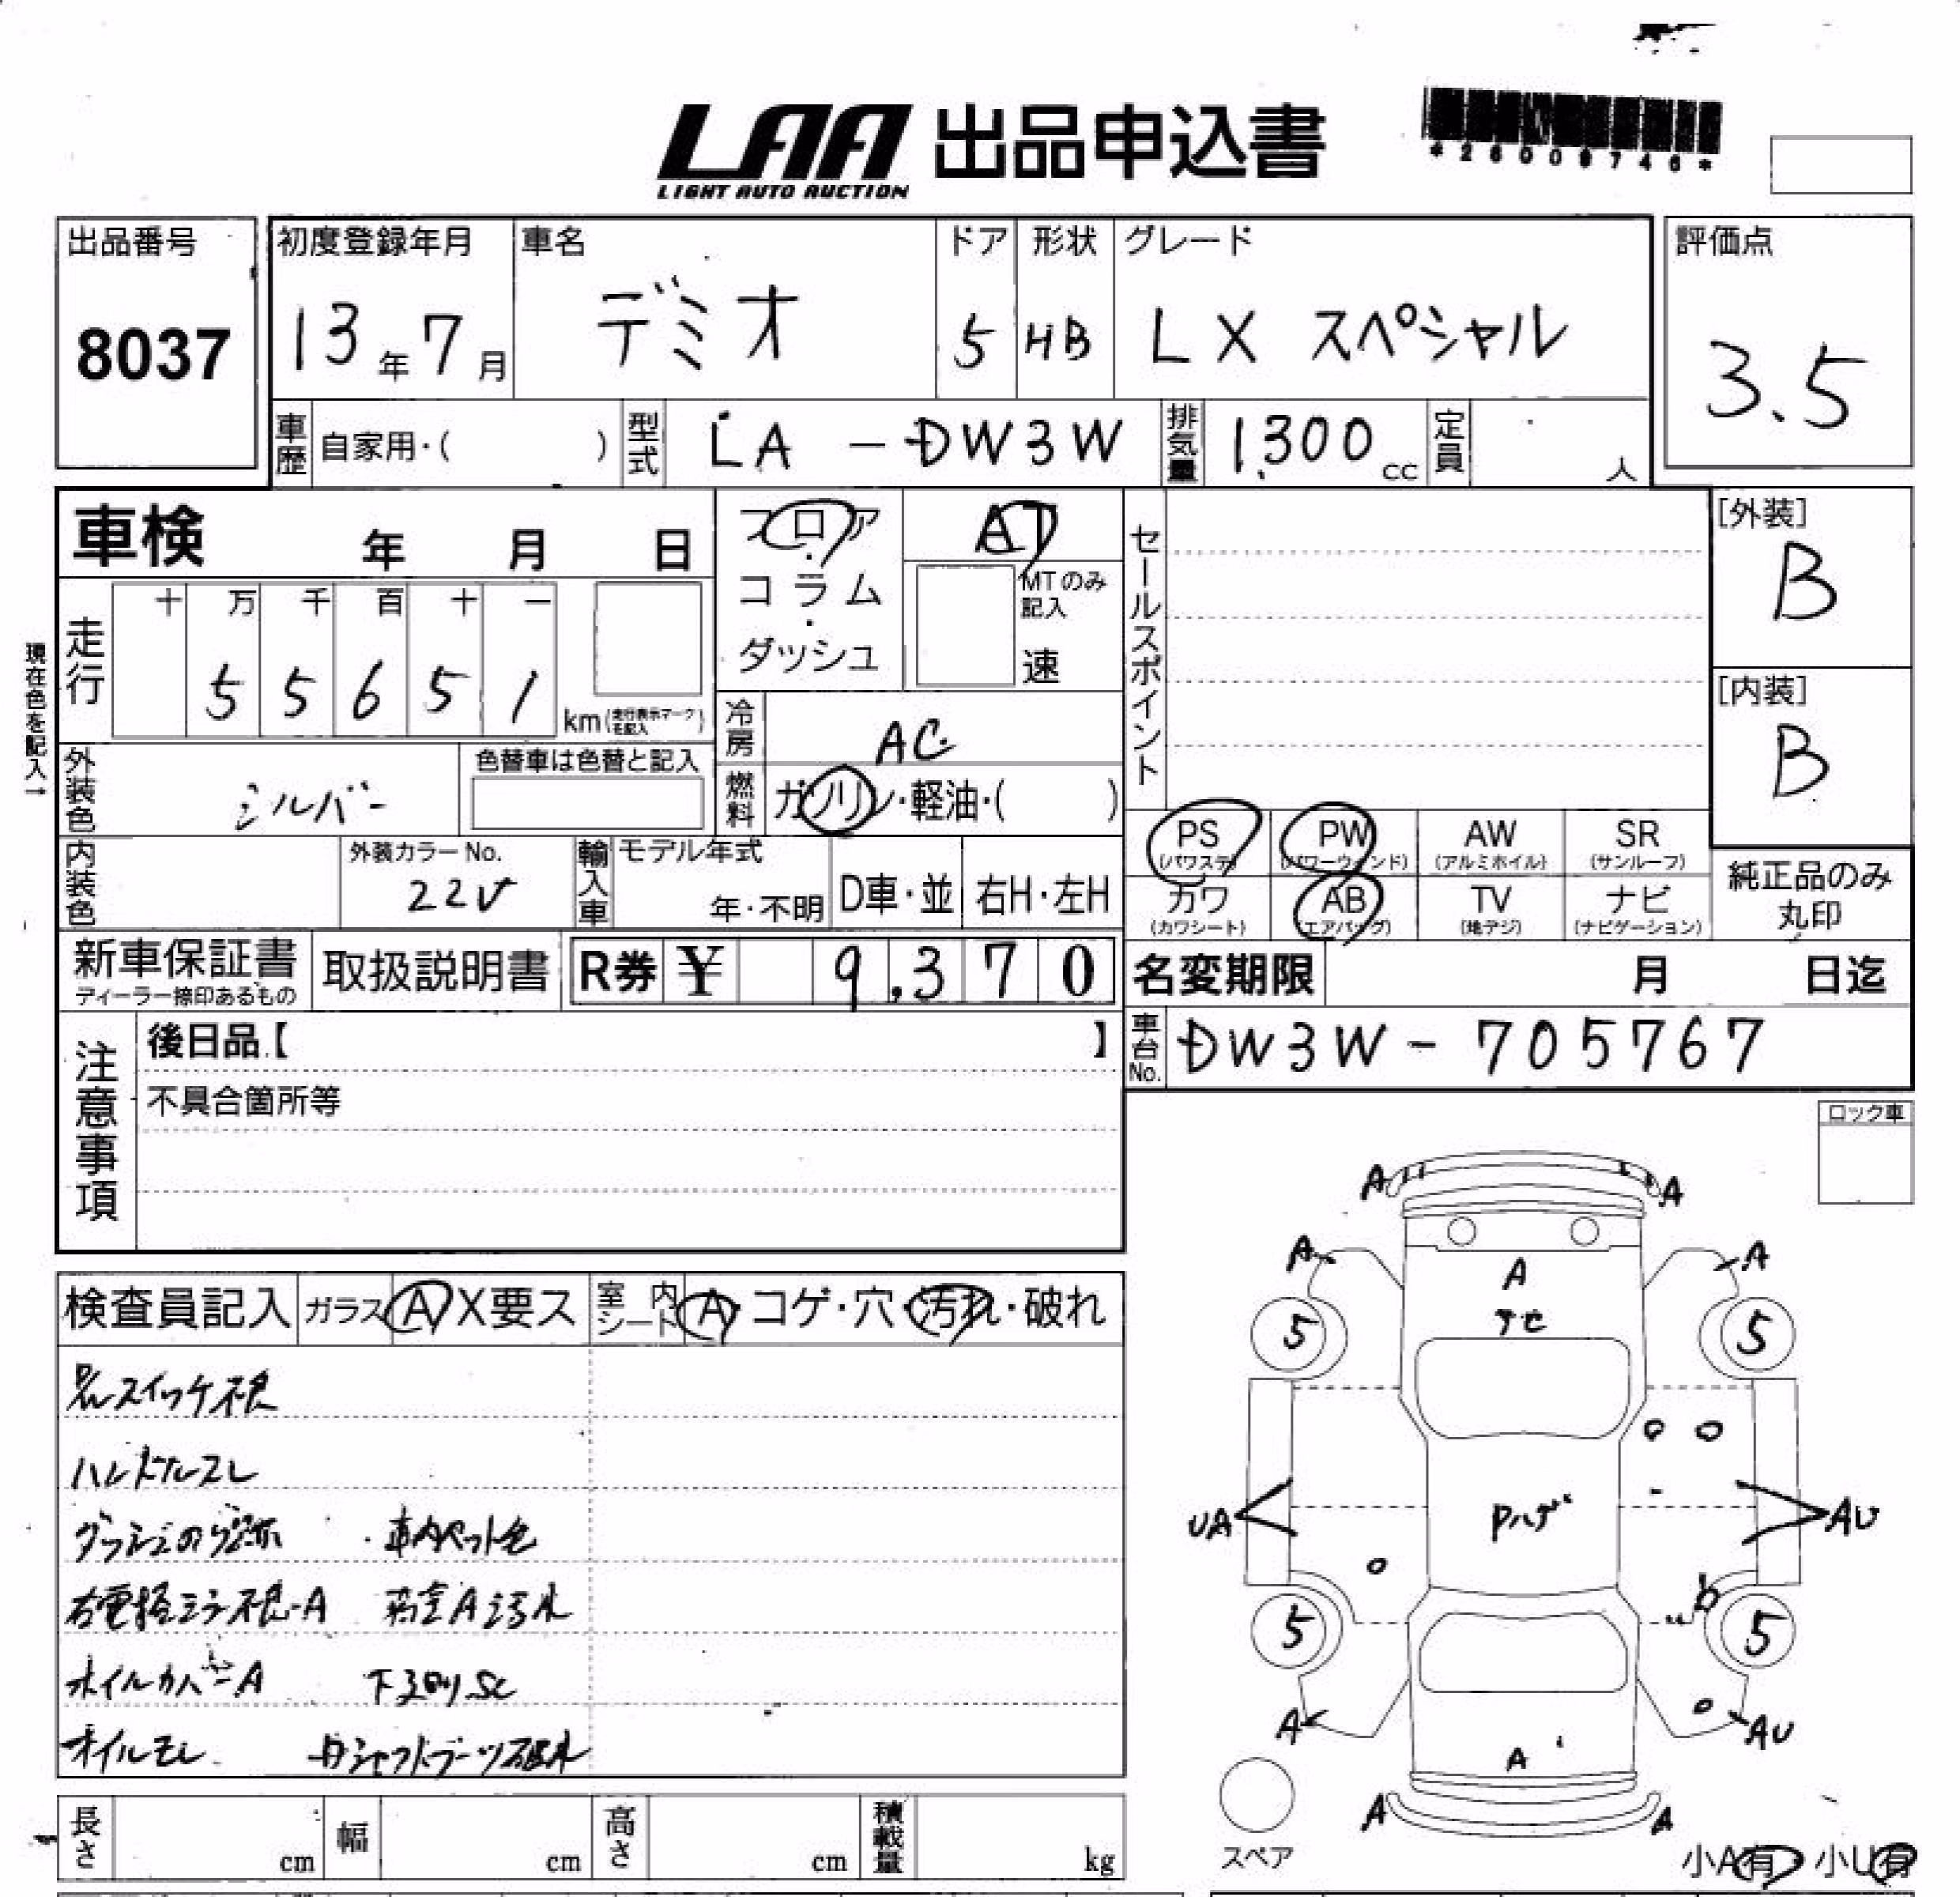 LAA 出品申込書
LIGHT AUTO AUCTION
*26009746*
出品番号 初度登録年月 車名 ドア 形状 グレード 評価点
8037 13年7月 デミオ 5 HB LX スペシャル 3.5
車歴 自家用・( ) 型式 LA-DW3W 排気量 1,300cc 定員 人
車検 年 月 日
フロア・コラム・ダッシュ
AT
MTのみ記入
速
セールスポイント
[外装]
B
[内装]
B
現在色を記入→
走行 十 万 千 百 十 一
5 5 6 5 1 km(走行表示マークを記入)
冷房 AC
外装色 シルバー 色替車は色替と記入
燃料 ガソリン・軽油・( )
内装色 外装カラーNo. 22V
輸入車 モデル年式 年・不明 D車・並 右H・左H
PS (パワステ) PW (パワーウィンド) AW (アルミホイル) SR (サンルーフ)
カワ (カワシート) AB (エアバッグ) TV (地デジ) ナビ (ナビゲーション)
純正品のみ丸印
新車保証書 ディーラー捺印あるもの 取扱説明書 R券 ¥ 9,370
名変期限 月 日迄
車台No. DW3W-705767
注意事項
後日品【 】
不具合箇所等
ロック車
検査員記入 ガラス A X要ス 室内シート A・コゲ・穴・汚れ・破れ
スイッチ不良
ハンドルスレ
・車内ペット毛
右電格ミラー不良・A 荷室A汚れ
オイルカバーA 下廻りSC
オイルモレ シャフトブーツ破れ
A A
A A
A
5 5
UA Pハゲ AU
5 5
A AU
A
A A
スペア
小A有・小U有
長さ cm 幅 cm 高さ cm 積載量 kg